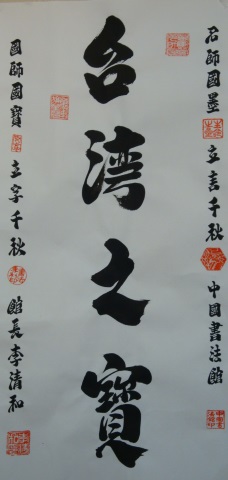 名師國墨 立言千秋 中國書法館
台湾之寶
國師國寶 立字千秋 館長李清和